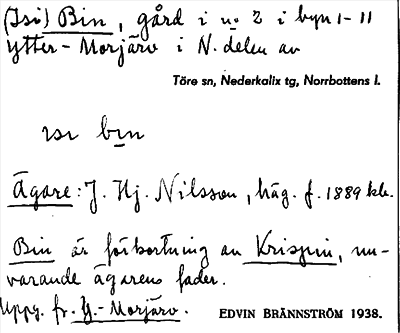 (Isi) Bin, gård i n:o 2 i byn 1-11
Ytter-Morjärv i N. delen av
Töre sn, Nederkalix tg, Norrbottens l.
ısı bın
Ägare: J. Hj. Nilsson, häg. f. 1889 kb.
Bin är förkortning av Krispin, nu-
varande ägarens fader.
Uppg. fr. Y.-Morjärv.
EDVIN BRÄNNSTRÖM 1938.